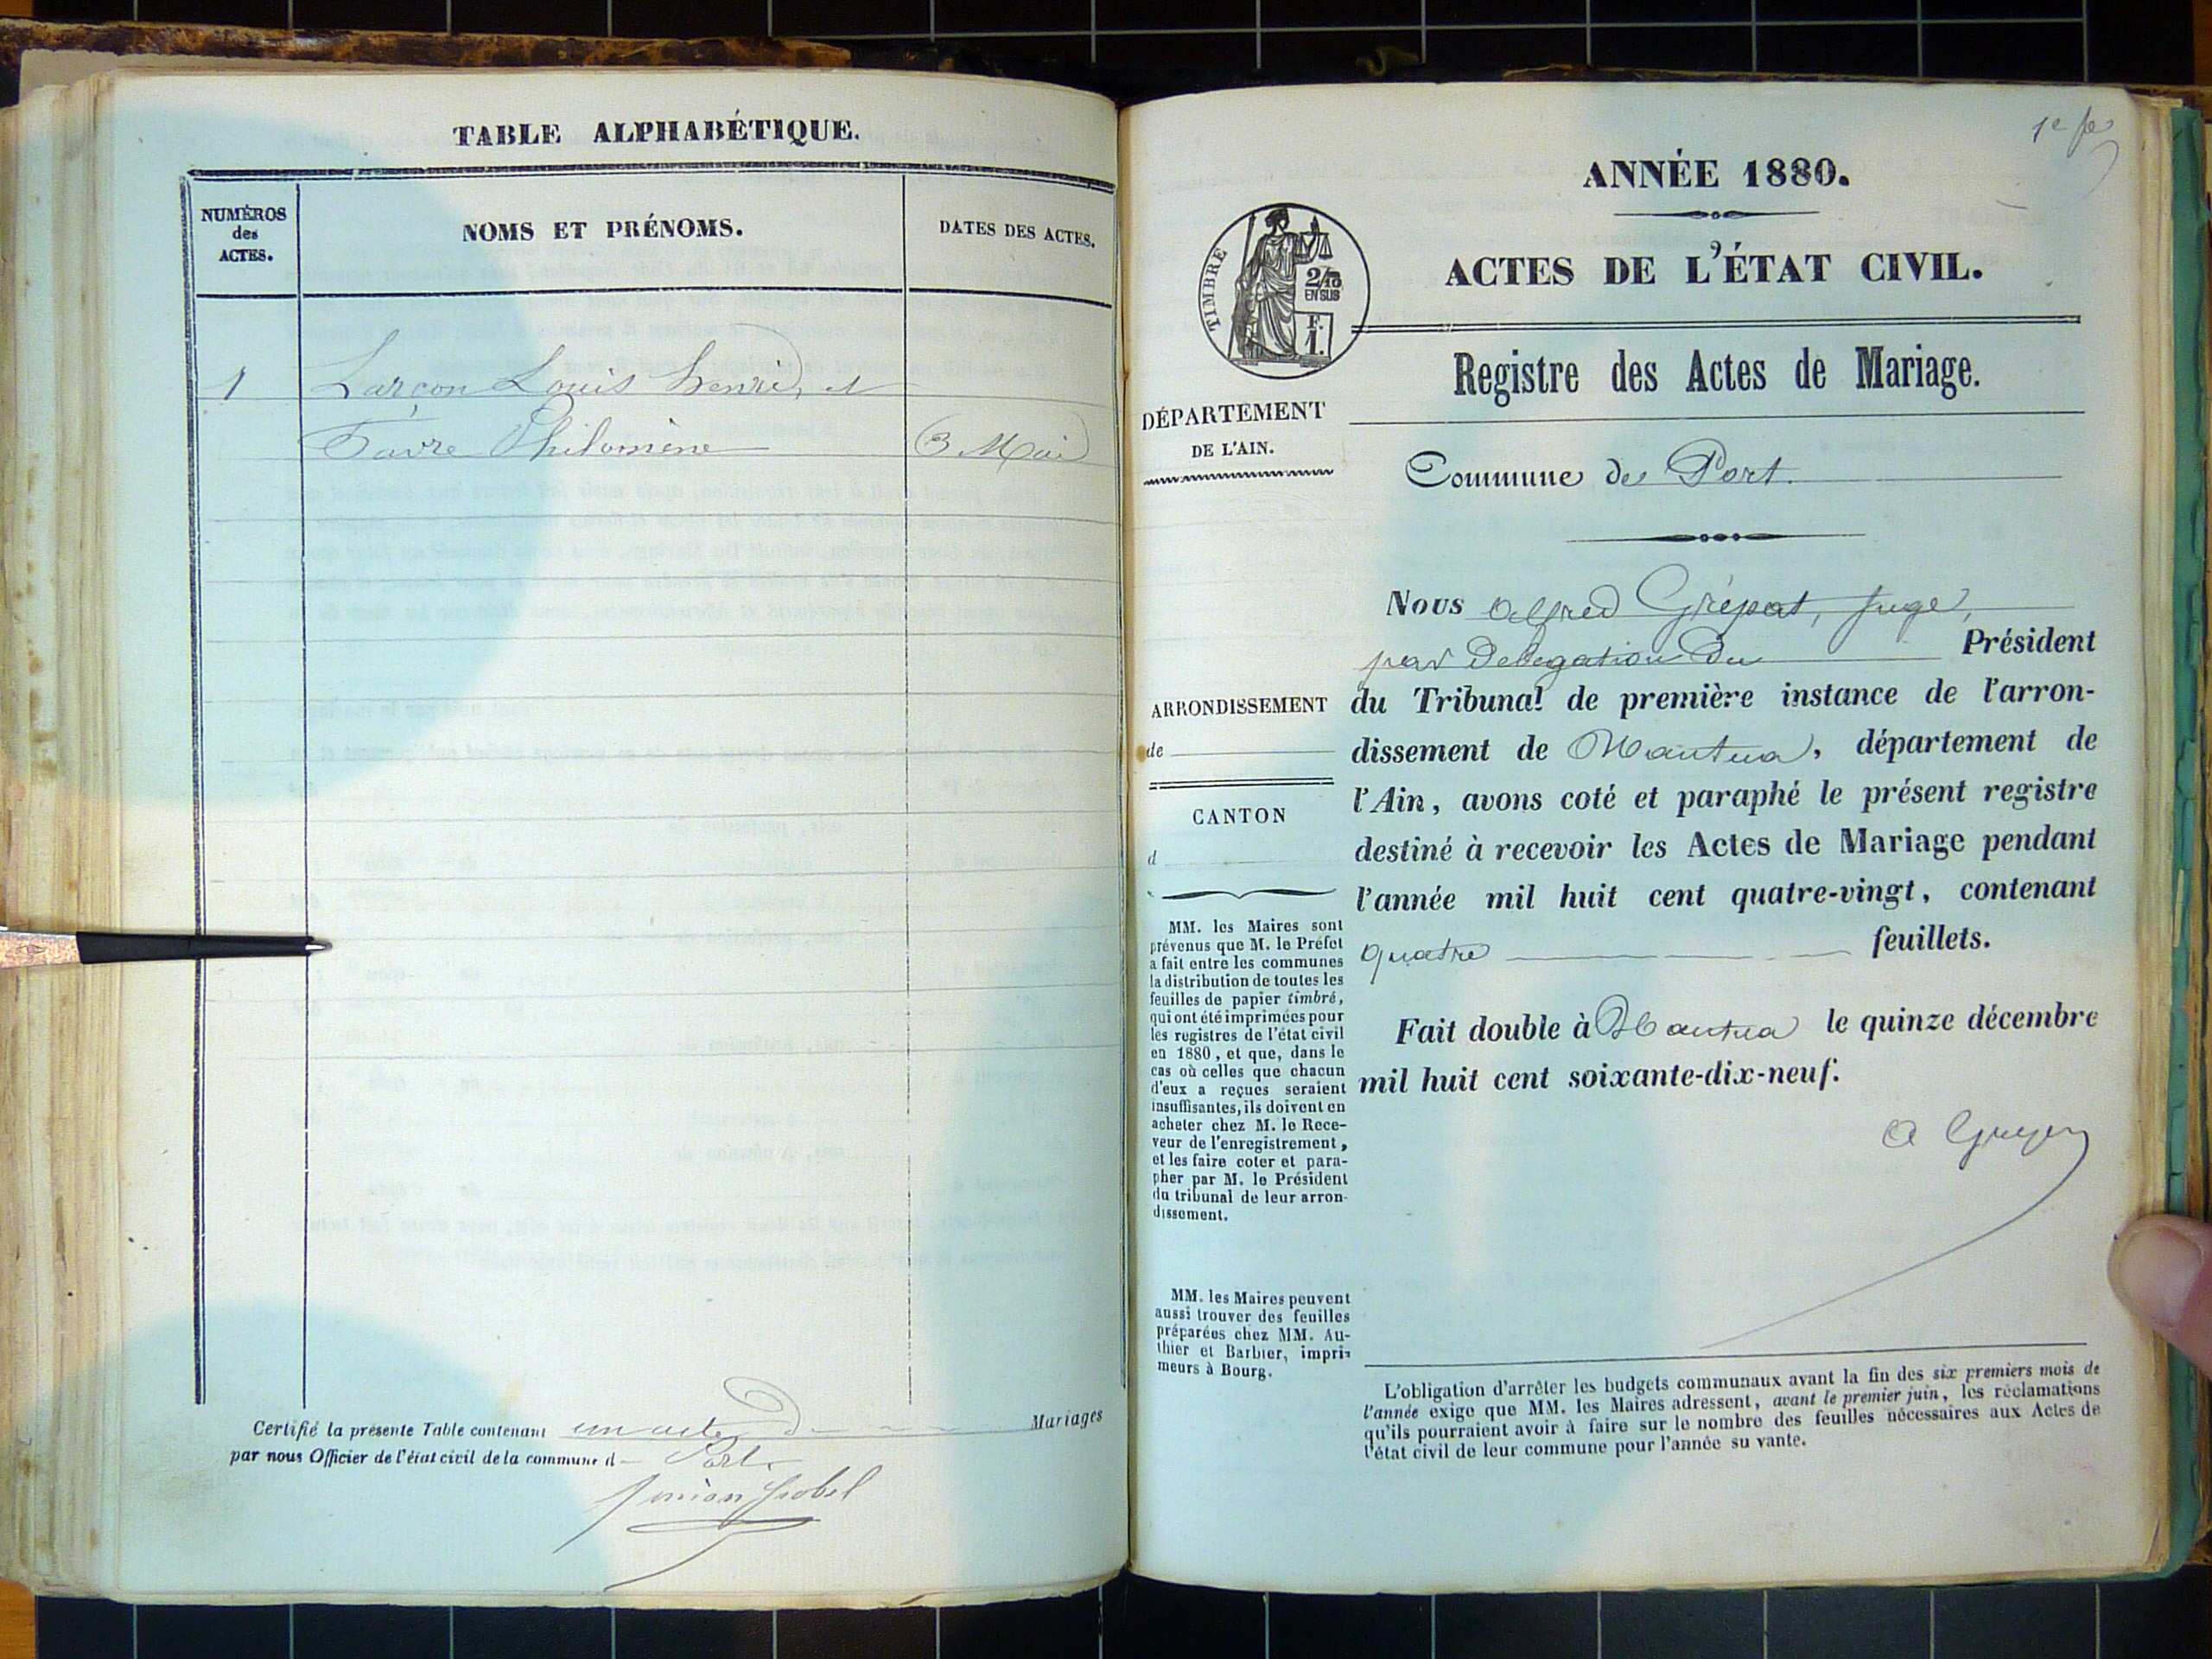 TABLE ALPHABÉTIQUE.
NUMÉROS
des
ACTES.
NOMS ET PRÉNOMS.
DATES DES ACTES.
1 Larçon Louis henri, et
Favre Philomène 3 Mai
Certifié la présente Table contenant un acte d Mariages
par nous Officier de l'état civil de la commune d Port
1e
ANNÉE 1880.
ACTES DE L'ÉTAT CIVIL.
TIMBRE
2/10
EN SUS
F.
1.
Registre des Actes de Mariage.
DÉPARTEMENT
DE L'AIN.
Commune de Port.
ARRONDISSEMENT
de
CANTON
d
MM. les Maires sont
prévenus que M. le Préfet
a fait entre les communes
la distribution de toutes les
feuilles de papier timbré,
qui ont été imprimées pour
les registres de l'état civil
en 1880, et que, dans le
cas où celles que chacun
d'eux a reçues seraient
insuffisantes, ils doivent en
acheter chez M. le Rece-
veur de l'enregistrement,
et les faire coter et para-
pher par M. le Président
du tribunal de leur arron-
dissement.
MM. les Maires peuvent
aussi trouver des feuilles
préparées chez MM. Au-
thier et Barbier, impri-
meurs à Bourg.
Nous Alfred juge,
par Délégation du Président
du Tribunal de première instance de l'arron-
dissement de Nantua, département de
l'Ain, avons coté et paraphé le présent registre
destiné à recevoir les Actes de Mariage pendant
l'année mil huit cent quatre-vingt, contenant
quatre feuillets.
Fait double à Nantua le quinze décembre
mil huit cent soixante-dix-neuf.
L'obligation d'arrêter les budgets communaux avant la fin des six premiers mois de
l'année exige que MM. les Maires adressent, avant le premier juin, les réclamations
qu'ils pourraient avoir à faire sur le nombre des feuilles nécessaires aux Actes de
l'état civil de leur commune pour l'année su vante.